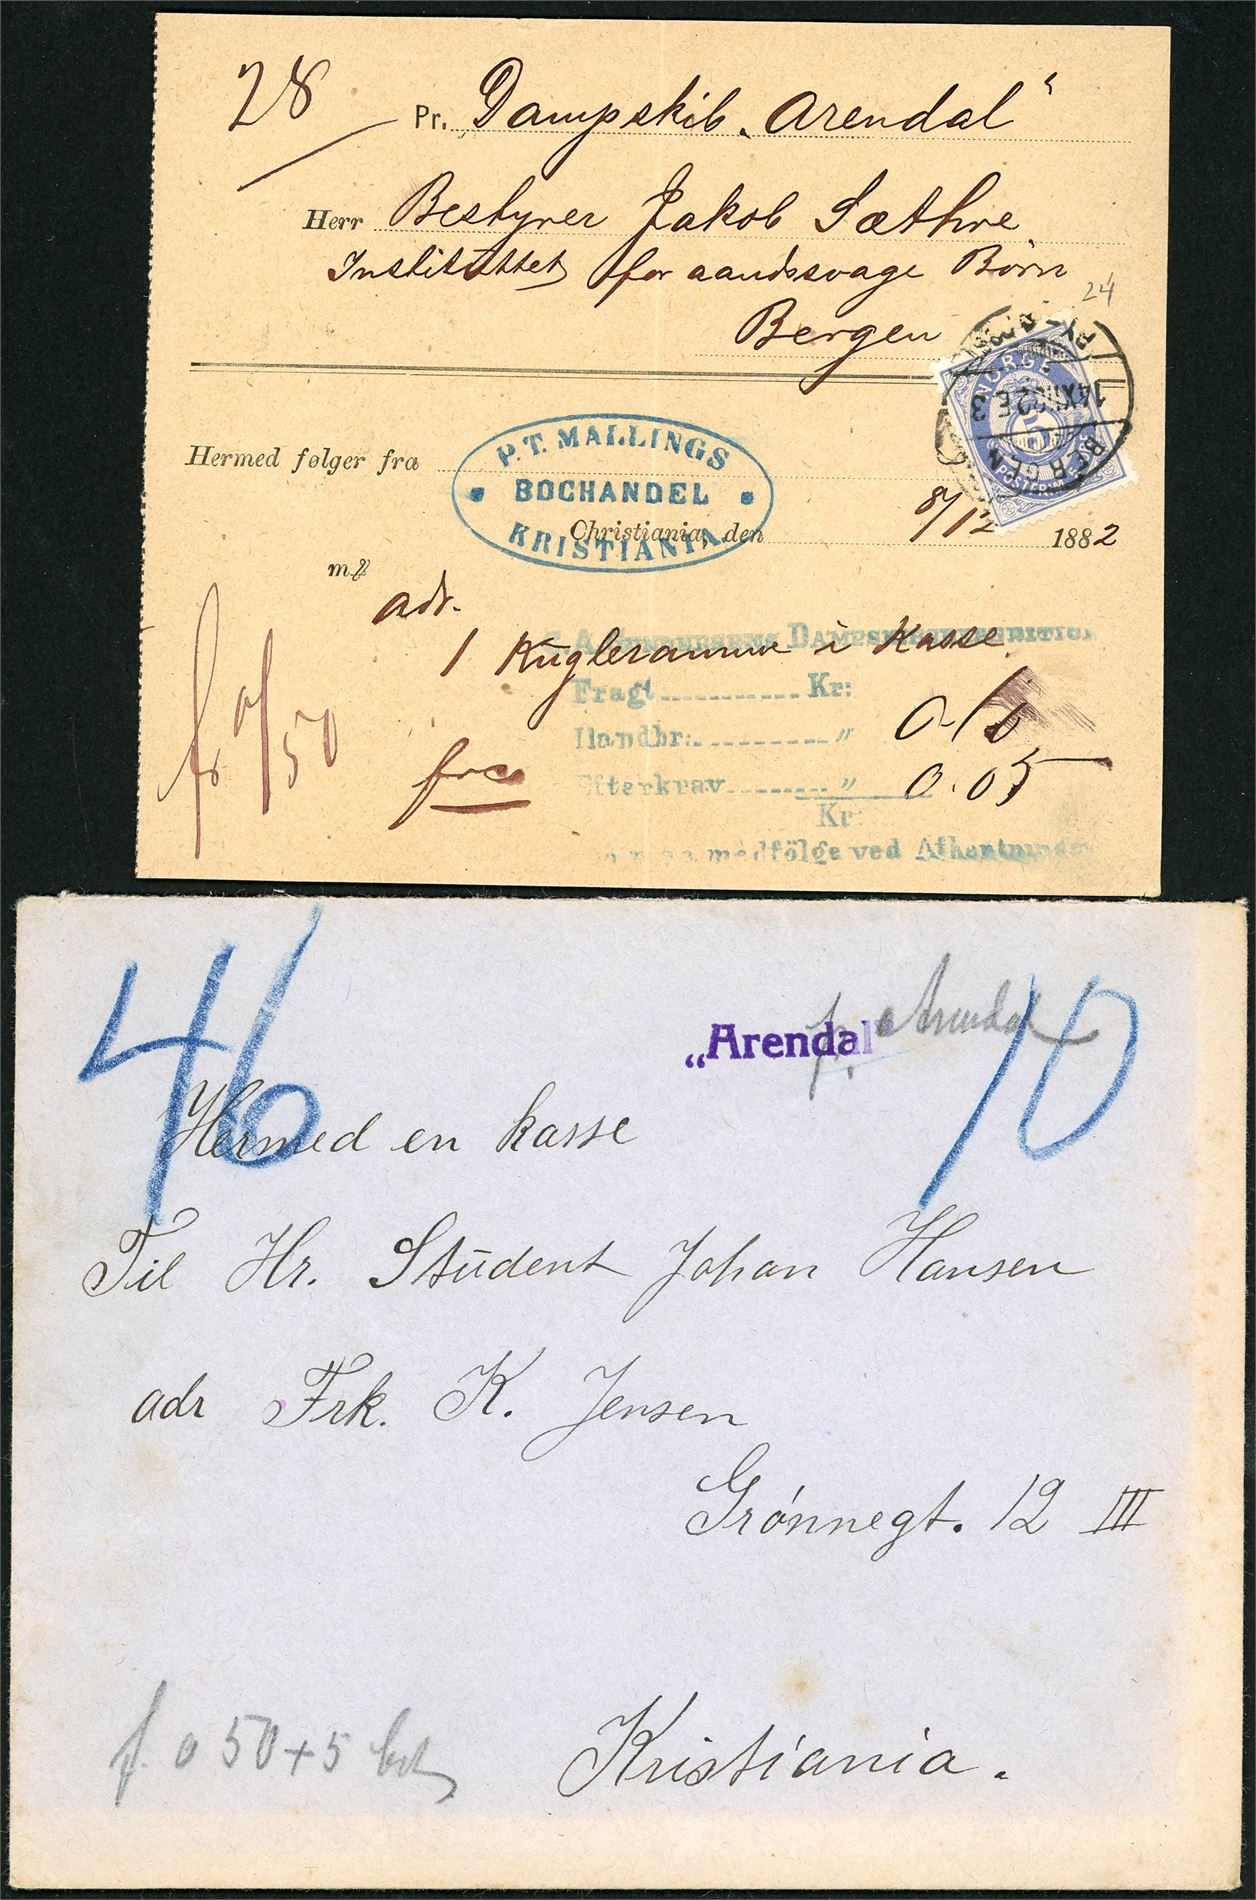 28
Pr. „Dampskib „Arendal“
Herr Bestyrer Jakob Sæthre
Instituttet for aandssvage Børn
24
Bergen
NORGE
5
POSTFRIM
BERGEN
14 XII 82 E 3
Hermed følger fra
P.T. MALLINGS
BOGHANDEL
KRISTIANIA
Christiania, den 8/12 1882
m/
adr.
1 Kugleramme i Kasse
DAMPSKIBSEXPEDITION
Fragt Kr:
Handbr: „ 0.10
Efterkrav „ 0.05
Kr:
medfölge ved Afhentningen
fr 0/50
frco
46
10
„Arendal“
pr. Arendal
Hermed en kasse
Til Hr. Student Johan Hansen
adr Frk. K. Jensen
Grónnegt. 12 III
Kristiania.
f. 0 50 + 5 bet